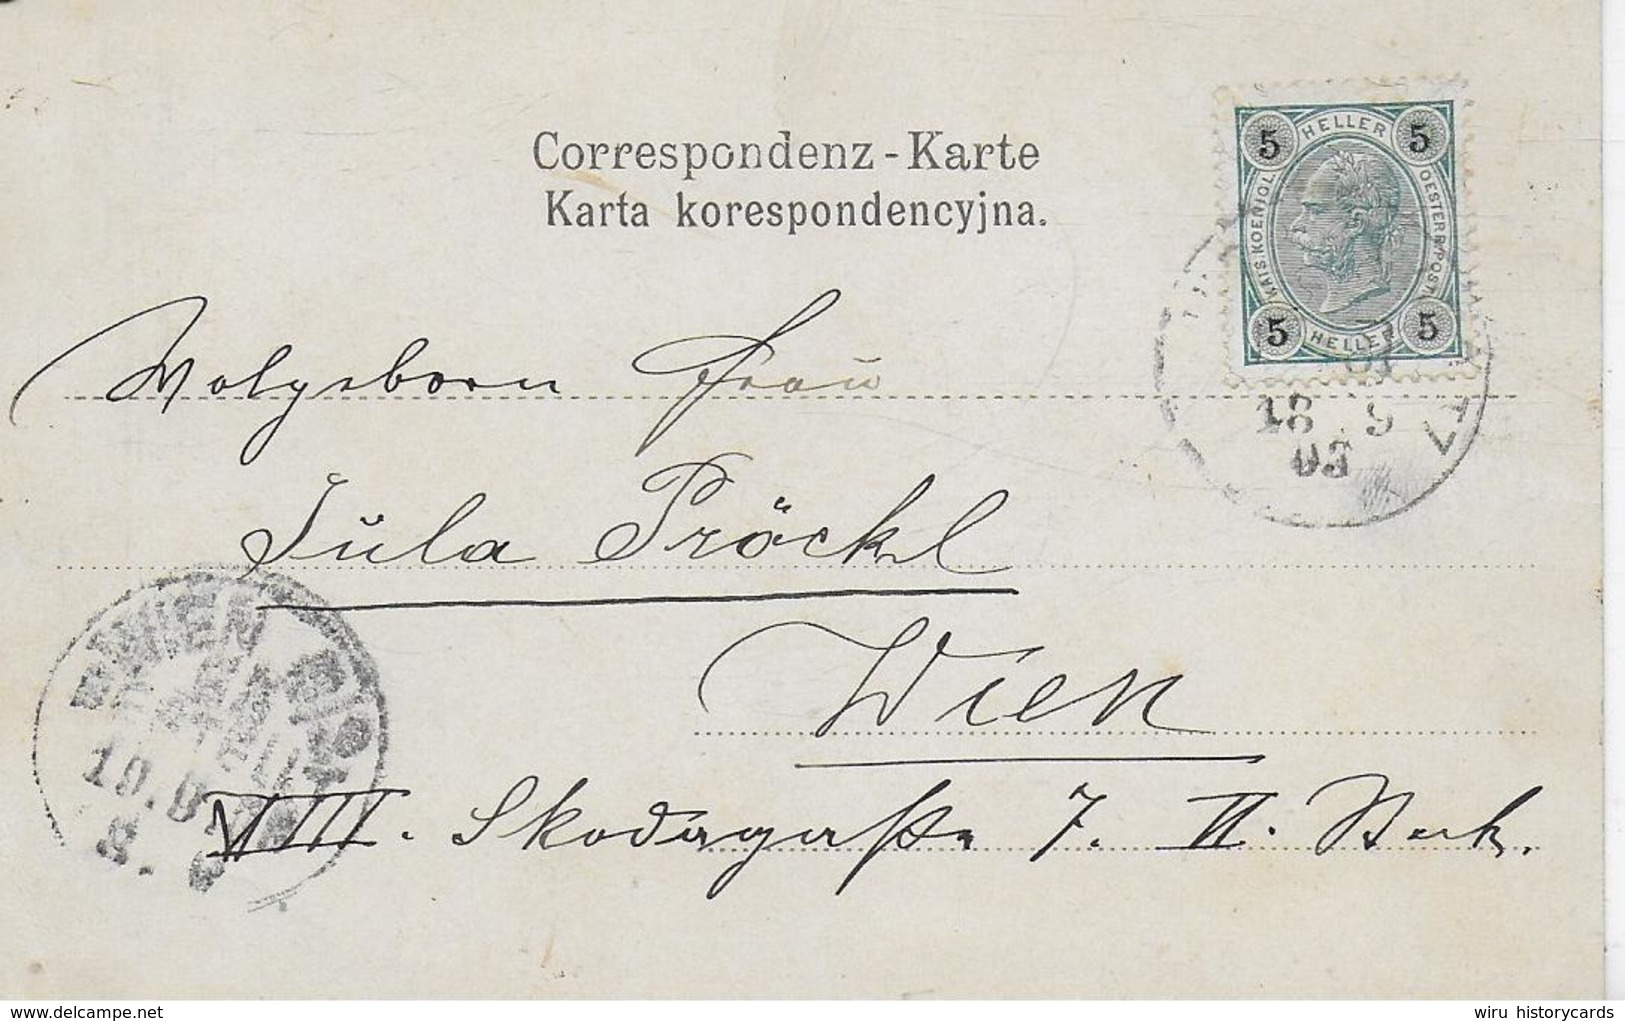 Correspondenz-Karte
Karta korespondencyjna.
5 HELLER 5
KAIS. KOENIGL. OESTERR. POST.
5 HELLER 5
18 9
03
Wolgeborn Frau
Jula Pröckl
Wien
WIEN
VIII. Skodagasse 7. II. Stock.
delcampe.net
wiru historycards